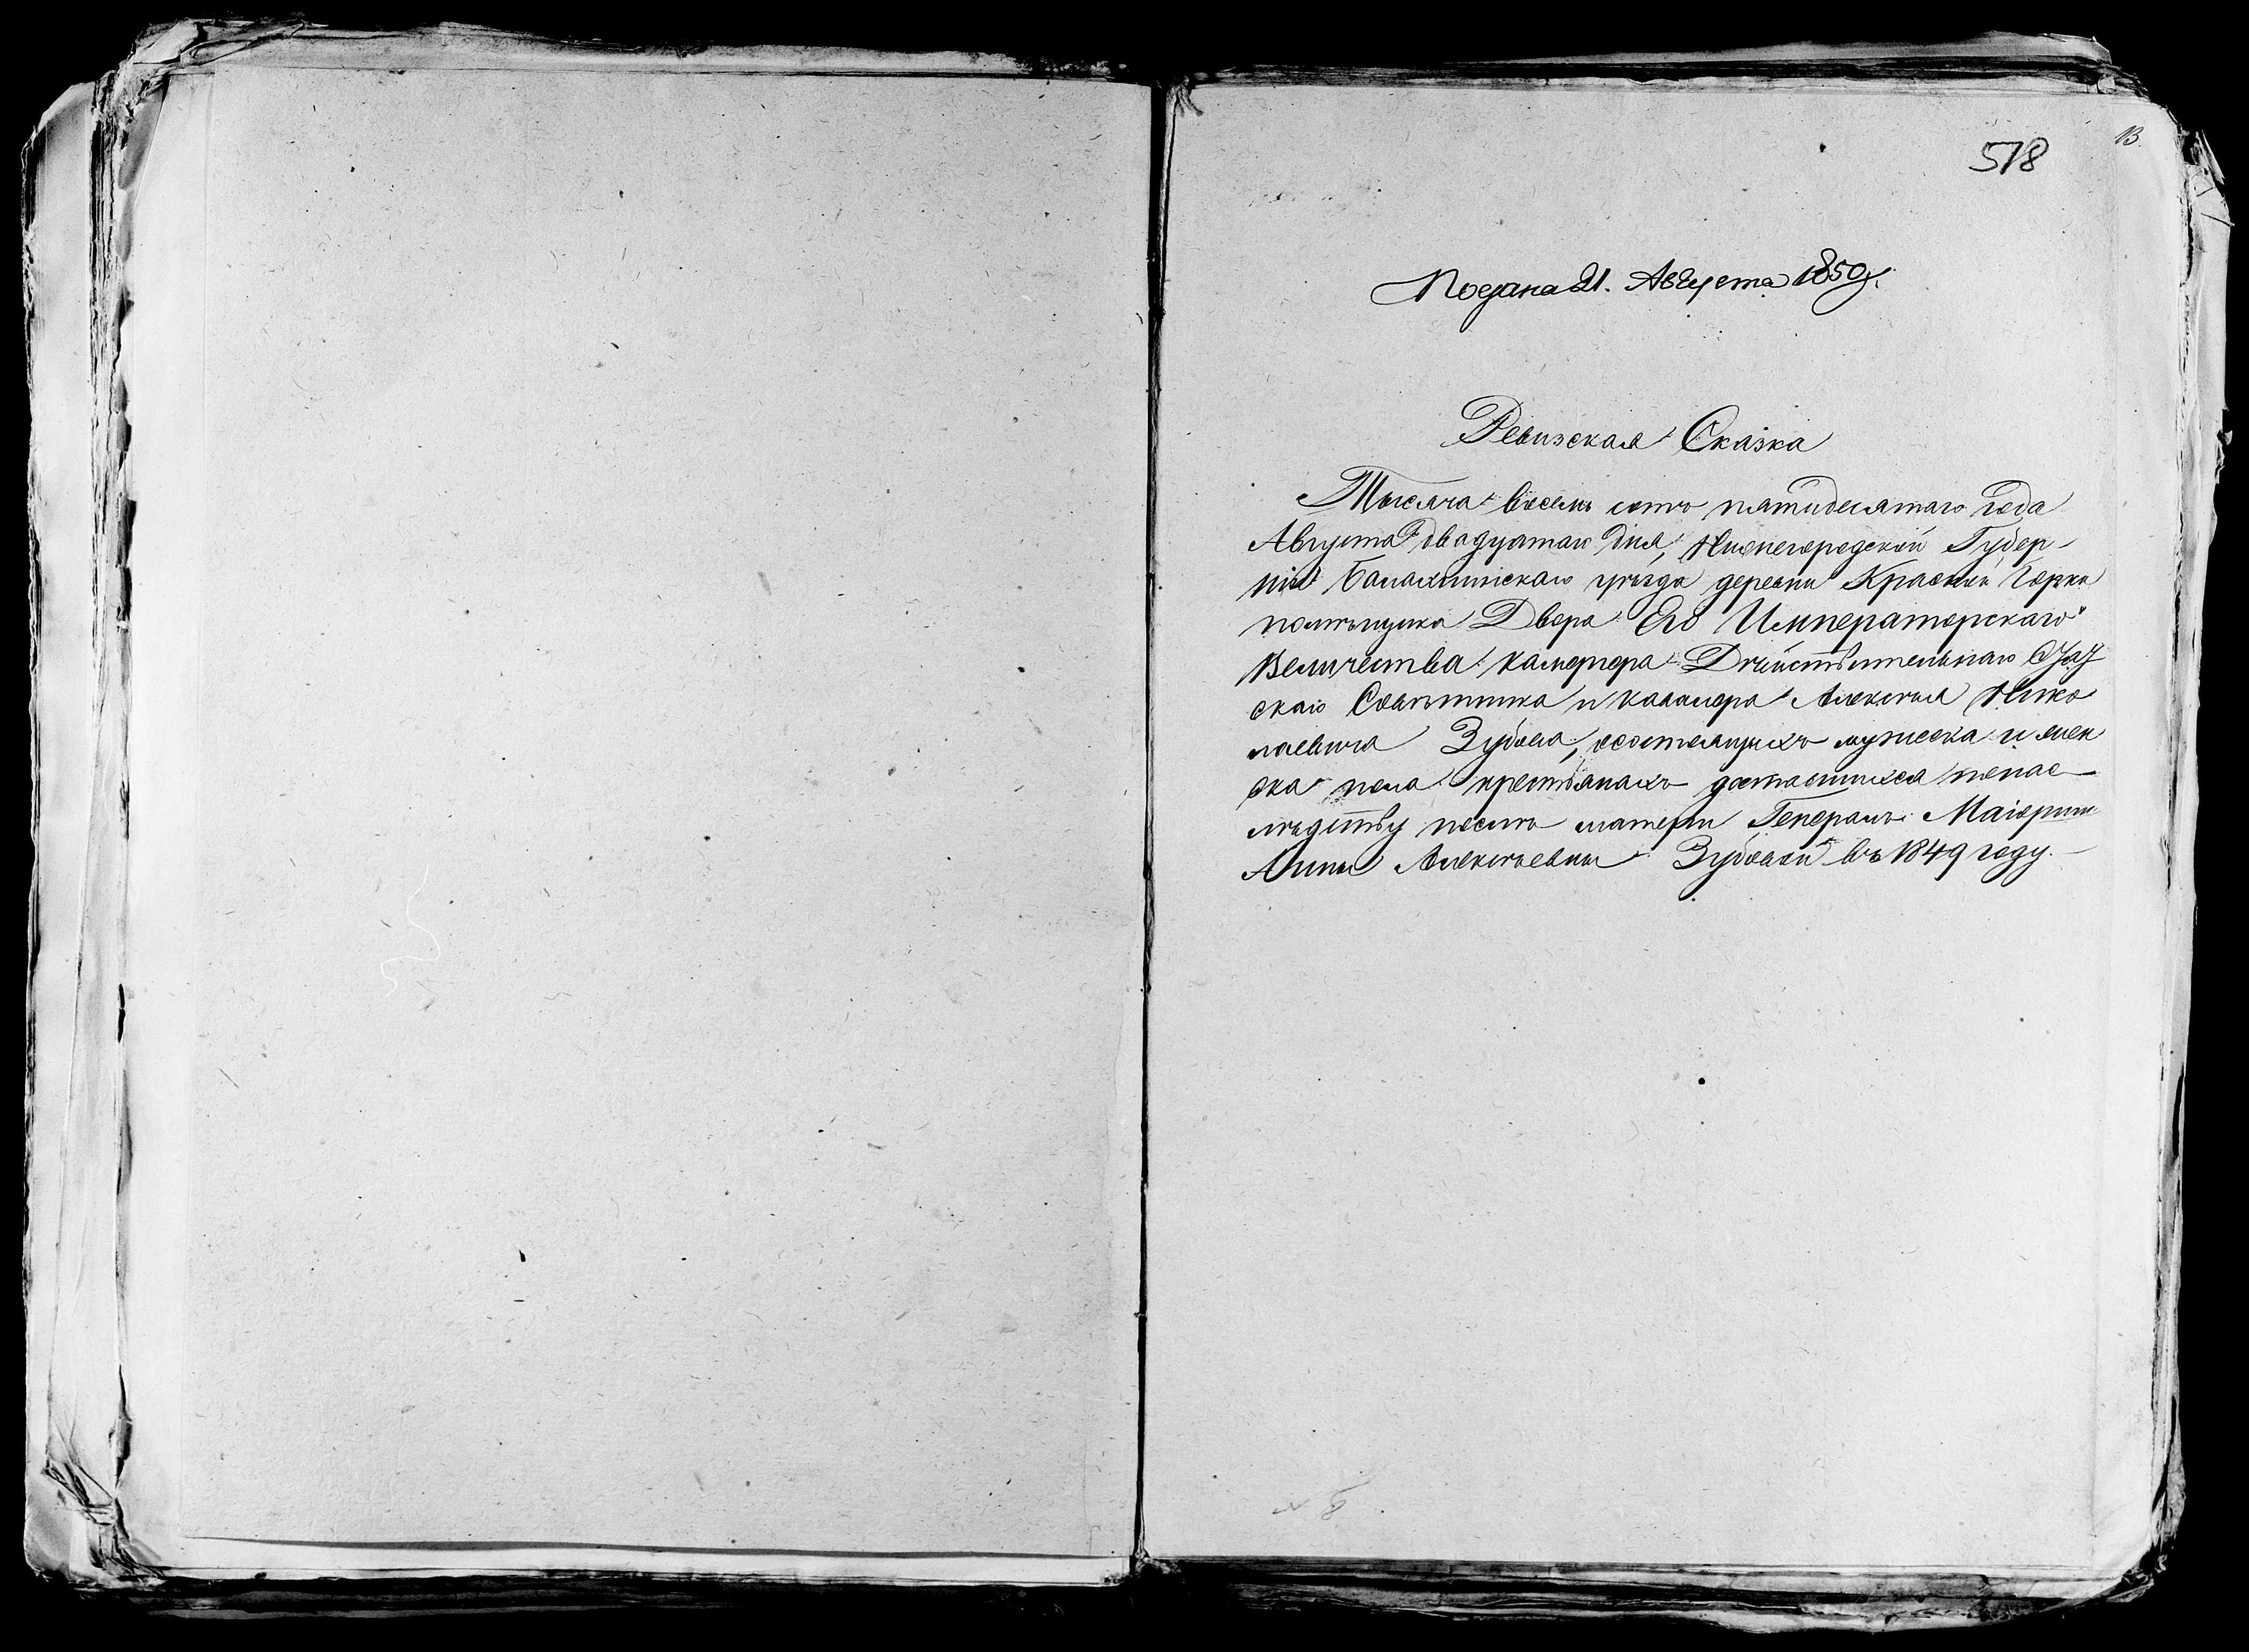 13.
518
Подана 21. Августа 1850 г.
Ревизская Сказка
Тысяча восемь сотъ пятидесятаго года
Августа двадцатаго дня, Нижегородской Губер-
ніи Балахнинскаго уѣзда деревни Красной Горки
помѣщика Двора Его Императорскаго
Величества камергера Дѣйствительнаго Стат
скаго Совѣтника и кавалера Алексѣя Нико
лаевича Зубова, состоящихъ мужеска и жен
ска пола крестьянахъ доставшихся понас-
лѣдству послѣ матери Генералъ Маіорши
Анны Алексѣевны Зубовой въ 1849 году.-
N 8